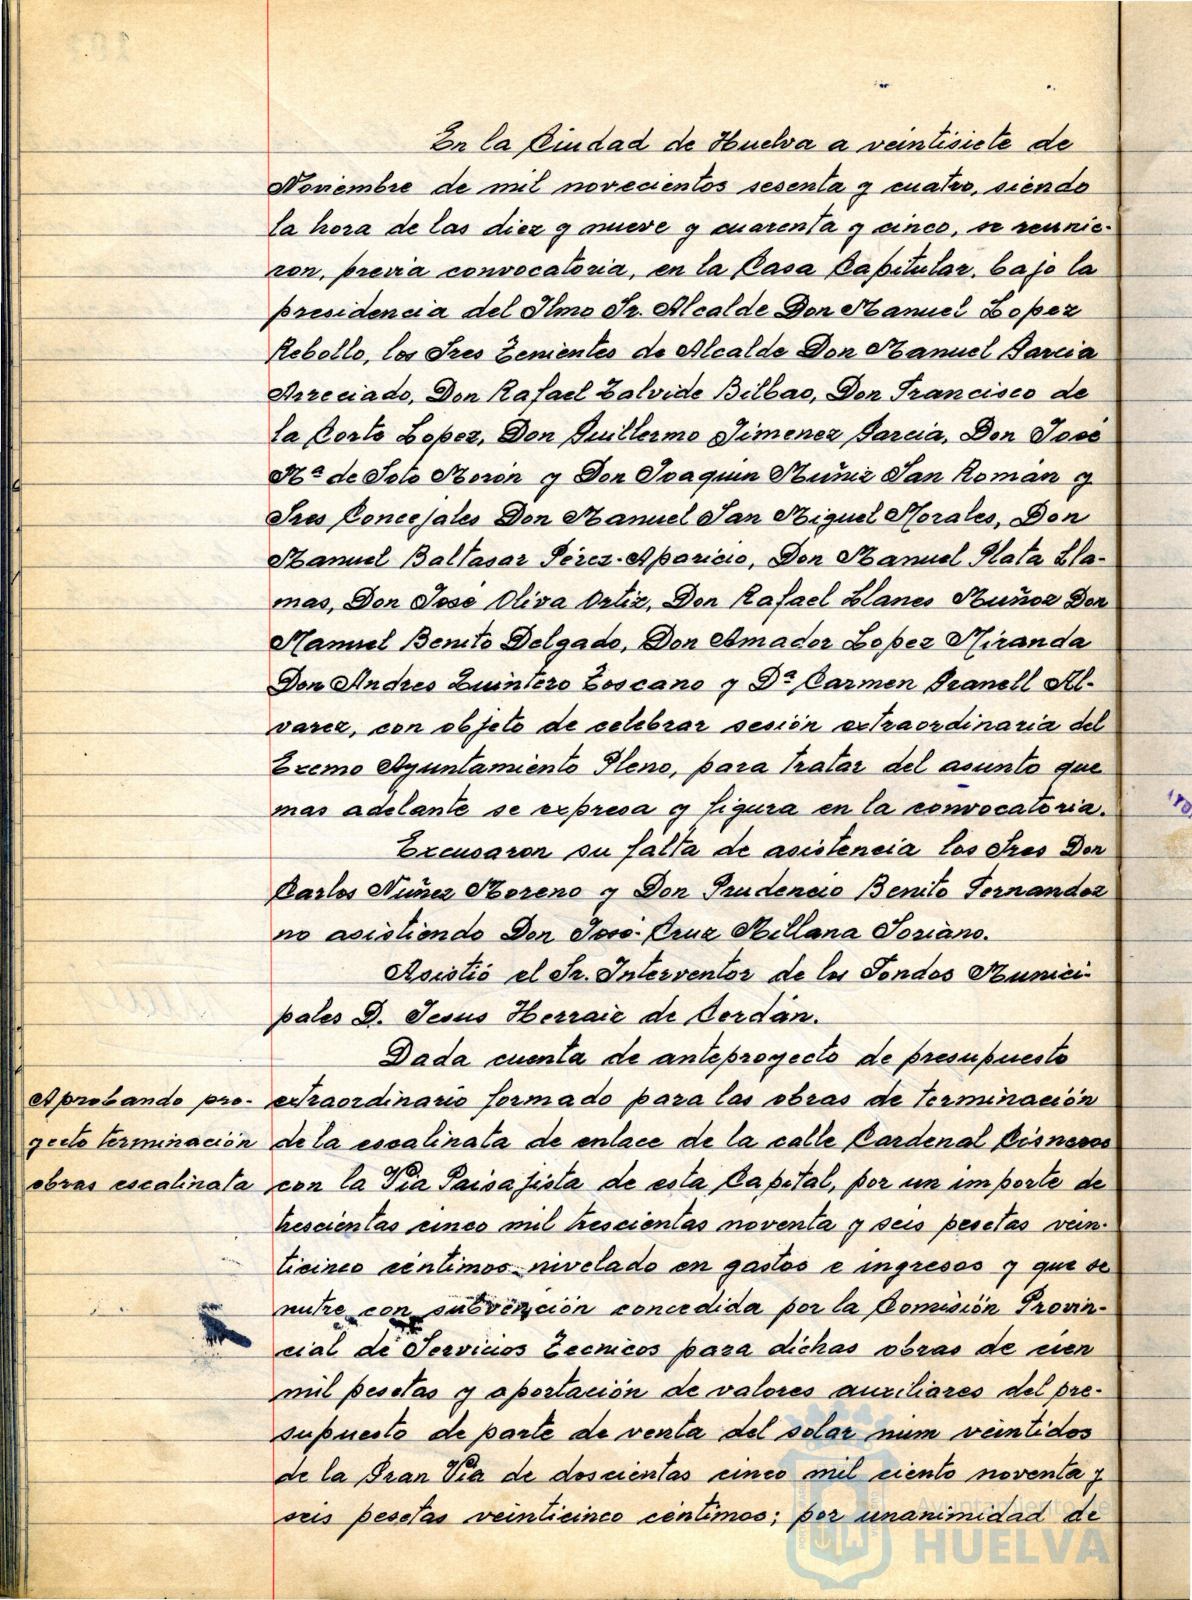 En la Ciudad de Huelva a veintisiete de
Noviembre de mil novecientos sesenta y cuatro, siendo
la hora de las diez y nueve y cuarenta y cinco, se reunie-
ron, previa convocatoria, en la Casa Capitular, bajo la
presidencia del Ilmo Sr. Alcalde Don Manuel Lopez
Rebollo, los Sres Tenientes de Alcalde Don Manuel Garcia
Arreciado, Don Rafael Zalvide Bilbao, Don Francisco de
la Corte Lopez, Don Guillermo Jimenez Garcia, Don José
Mª de Soto Morón y Don Joaquin Muñiz San Román y
Sres Concejales Don Manuel San Miguel Morales, Don
Manuel Baltasar Pérez-Aparicio, Don Manuel Plata Lla-
mas, Don José Oliva Ortiz, Don Rafael Llanes Muñoz Don
Manuel Benito Delgado, Don Amador Lopez Miranda
Don Andres Quintero Toscano y Dª Carmen Granell Al-
varez, con objeto de celebrar sesión extraordinaria del
Excmo Ayuntamiento Pleno, para tratar del asunto que
mas adelante se expresa y figura en la convocatoria.
Excusaron su falta de asistencia los Sres Don
Carlos Núñez Moreno y Don Prudencio Benito Fernandez
no asistiendo Don José-Cruz Millana Soriano.
Asistió el Sr. Interventor de los Fondos Munici-
pales D. Jesus Herraiz de Cerdán.
Dada cuenta de anteproyecto de presupuesto
Aprobando pro-
yecto terminación
obras escalinata
extraordinario formado para las obras de terminación
de la escalinata de enlace de la calle Cardenal Cisneros
con la Via Paisajista de esta Capital, por un importe de
trescientas cinco mil trescientas noventa y seis pesetas vein-
ticinco céntimos nivelado en gastos e ingresos y que se
nutre con subvención concedida por la Comisión Provin-
cial de Servicios Tecnicos para dichas obras de cien
mil pesetas y aportación de valores auxiliares del pre-
supuesto de parte de venta del solar núm veintidos
de la Gran Via de doscientas cinco mil ciento noventa y
seis pesetas veinticinco céntimos; por unanimidad de
Ayuntamiento de
HUELVA